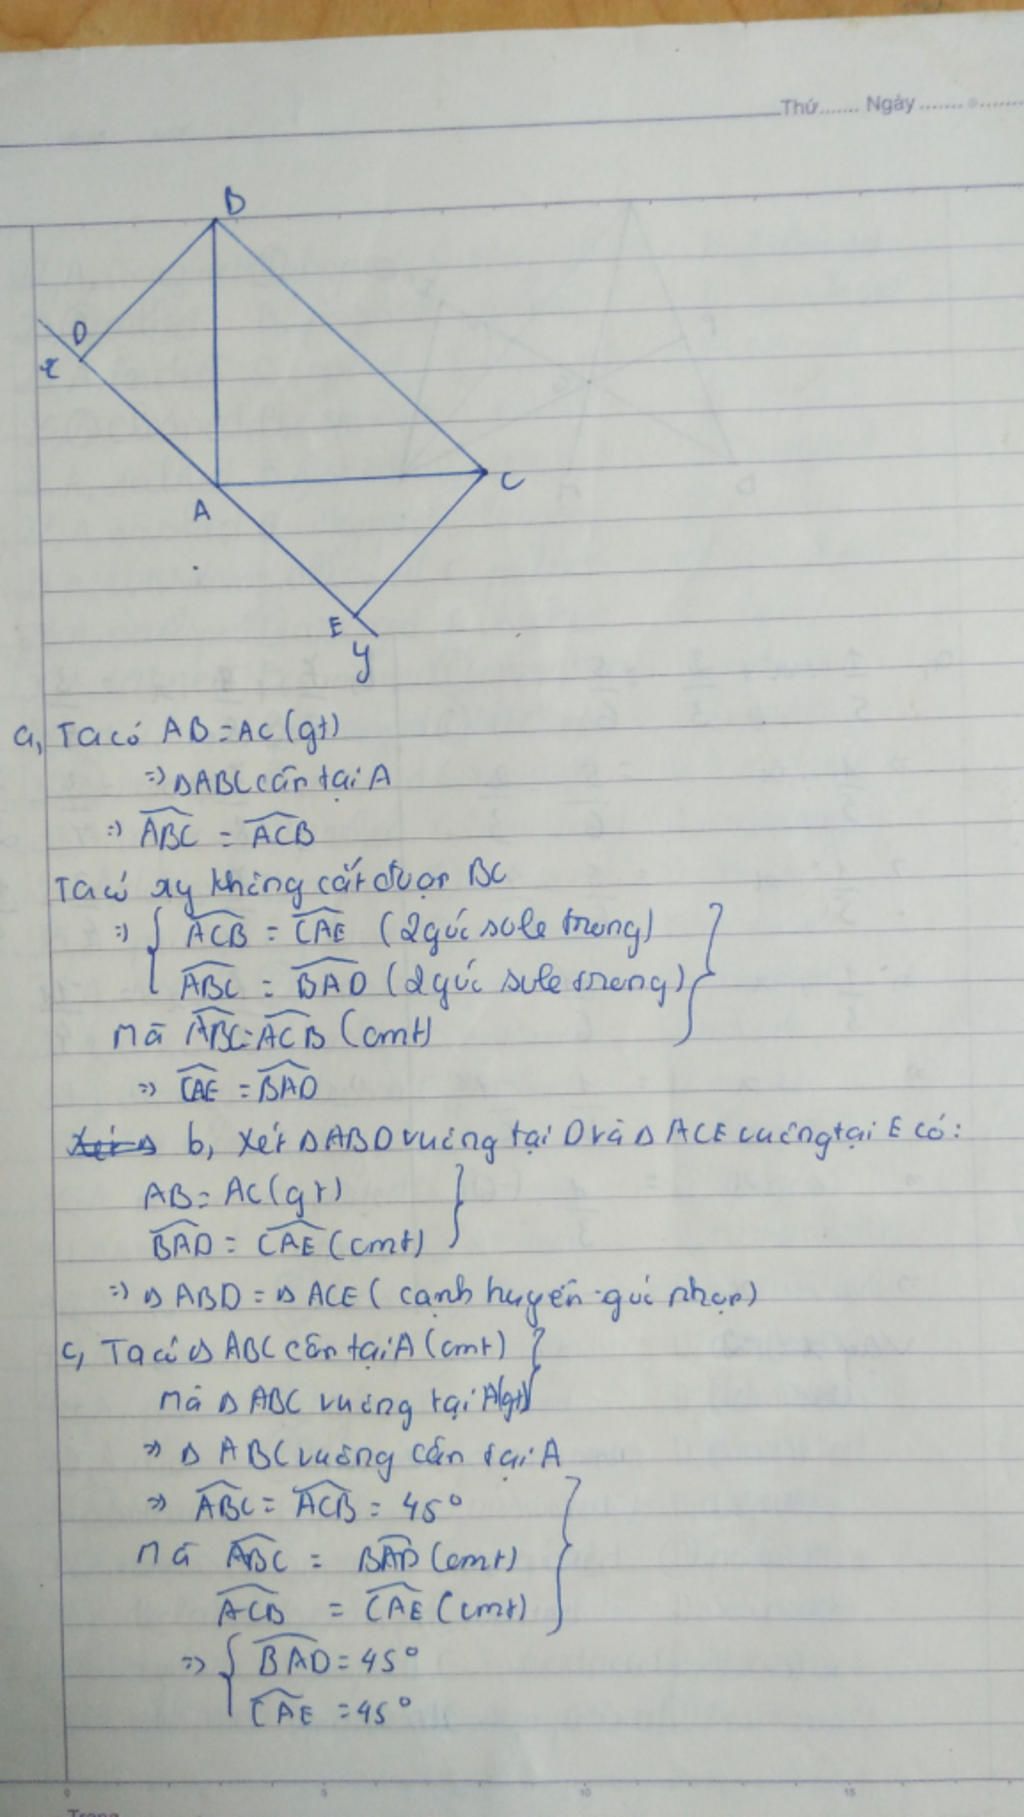 Thứ....... Ngày ..............
B
D
x
C
A
E
y
a, Ta có AB = AC (gt)
=> ΔABC cân tại A
=> \widehat{ABC} = \widehat{ACB}
Ta có xy không cắt được BC
=> { \widehat{ACB} = \widehat{CAE} (2 góc sole trong) }
\widehat{ABC} = \widehat{BAD} (2 góc sole trong)
mà \widehat{ABC} = \widehat{ACB} (cmt)
=> \widehat{CAE} = \widehat{BAD}
b, Xét ΔABD vuông tại D và ΔACE vuông tại E có:
AB = AC (gt) }
\widehat{BAD} = \widehat{CAE} (cmt)
=> ΔABD = ΔACE (cạnh huyền - góc nhọn)
c, Ta có ΔABC cân tại A (cmt) }
mà ΔABC vuông tại A (gt)
=> ΔABC vuông cân tại A
=> \widehat{ABC} = \widehat{ACB} = 45° }
mà \widehat{ABC} = \widehat{BAD} (cmt)
\widehat{ACB} = \widehat{CAE} (cmt)
=> { \widehat{BAD} = 45°
\widehat{CAE} = 45°
0 5 10 15
Trang